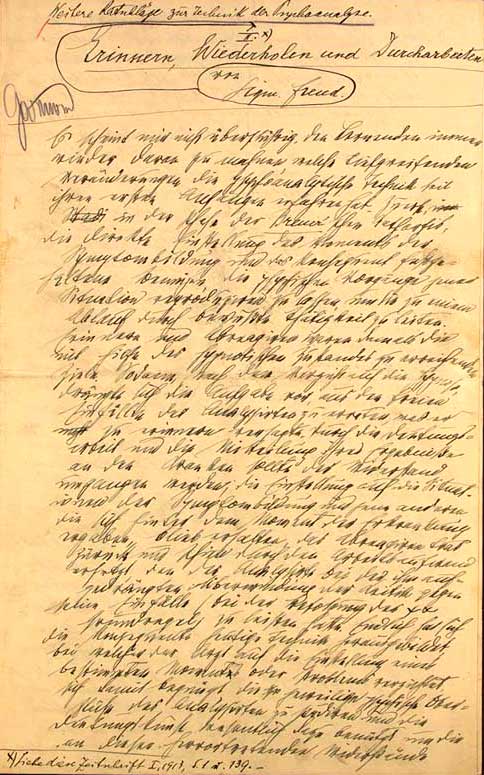 Weitere Ratschläge zur Technik der Psychoanalyse.
II. x)
Erinnern, Wiederholen und Durcharbeiten
von
Sigm. Freud.
Es scheint mir nicht überflüssig, den Lernenden immer
wieder daran zu mahnen, welche tiefgreifenden
Veränderungen die psychoanalytische Technik seit
ihren ersten Anfängen erfahren hat. Zuerst, in
in der Phase der Breuer'schen Katharsis,
die direkte Einstellung des Moments der
Symptombildung und das konsequent festge-
haltene Bemühen, die psychischen Vorgänge jener
Situation reproduzieren zu lassen, um sie zu einem
Ablauf durch bewusste Tätigkeit zu leiten.
Erinnern und Abreagiren waren damals die
mit Hilfe des hypnotischen Zustandes zu erreichenden
Ziele. Sodann, nach dem Verzicht auf die Hypnose,
drängte sich die Aufgabe vor, aus den freien
Einfällen des Analysirten zu erraten, was er
zu erinnern versagte. Durch die Deutungs-
arbeit und die Mitteilung ihrer Ergebnisse
an den Kranken sollte der Widerstand
umgangen werden; die Einstellung auf die Situat-
ionen der Symptombildung und jene anderen,
die sich hinter dem Moment der Erkrankung
ergaben, blieb erhalten, das Abreagiren trat
zurück und schien durch den Arbeitsaufwand
ersetzt, den der Analysirte bei der ihm auf-
gedrängten Überwindung der Kritik gegen
seine Einfälle bei der Befolgung der ψα
Grundregel zu leisten hatte. Endlich hat sich
die konsequente heutige Technik herausgebildet,
bei welcher der Arzt auf die Einstellung eines
bestimmten Moments oder Problems verzichtet,
sich damit begnügt, die jeweilige psychische Ober-
fläche des Analysirten zu studiren und die
Deutungskunst wesentlich dazu benützt, um die
an dieser hervortretenden Widerstände
x) Siehe diese Zeitschrift I, 1913, S. 1 u. 139. –